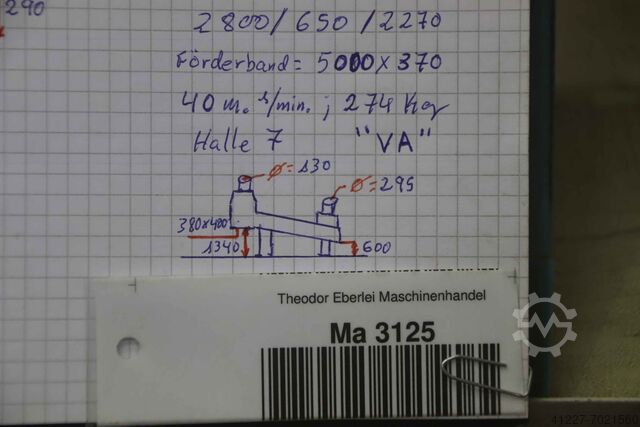 290
2800/650/2270
Förderband = 5000x370
40 m. s/min. ; 274 Kg
Halle 7 "VA"
Ø=130
Ø=295
380x400
1340
600
Theodor Eberlei Maschinenhandel
Ma 3125
41227-7021560